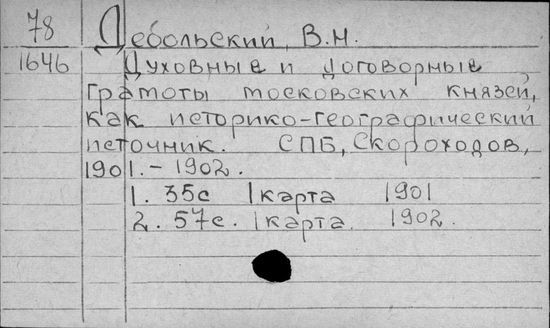 78 Дебольский, В.Н.
1646 Духовные и договорные
грамоты московских князей,
как историко-географический
источник. СПБ, Скороходов,
1901.-1902.
1. 35с 1карта 1901
2. 57с. 1карта. 1902.